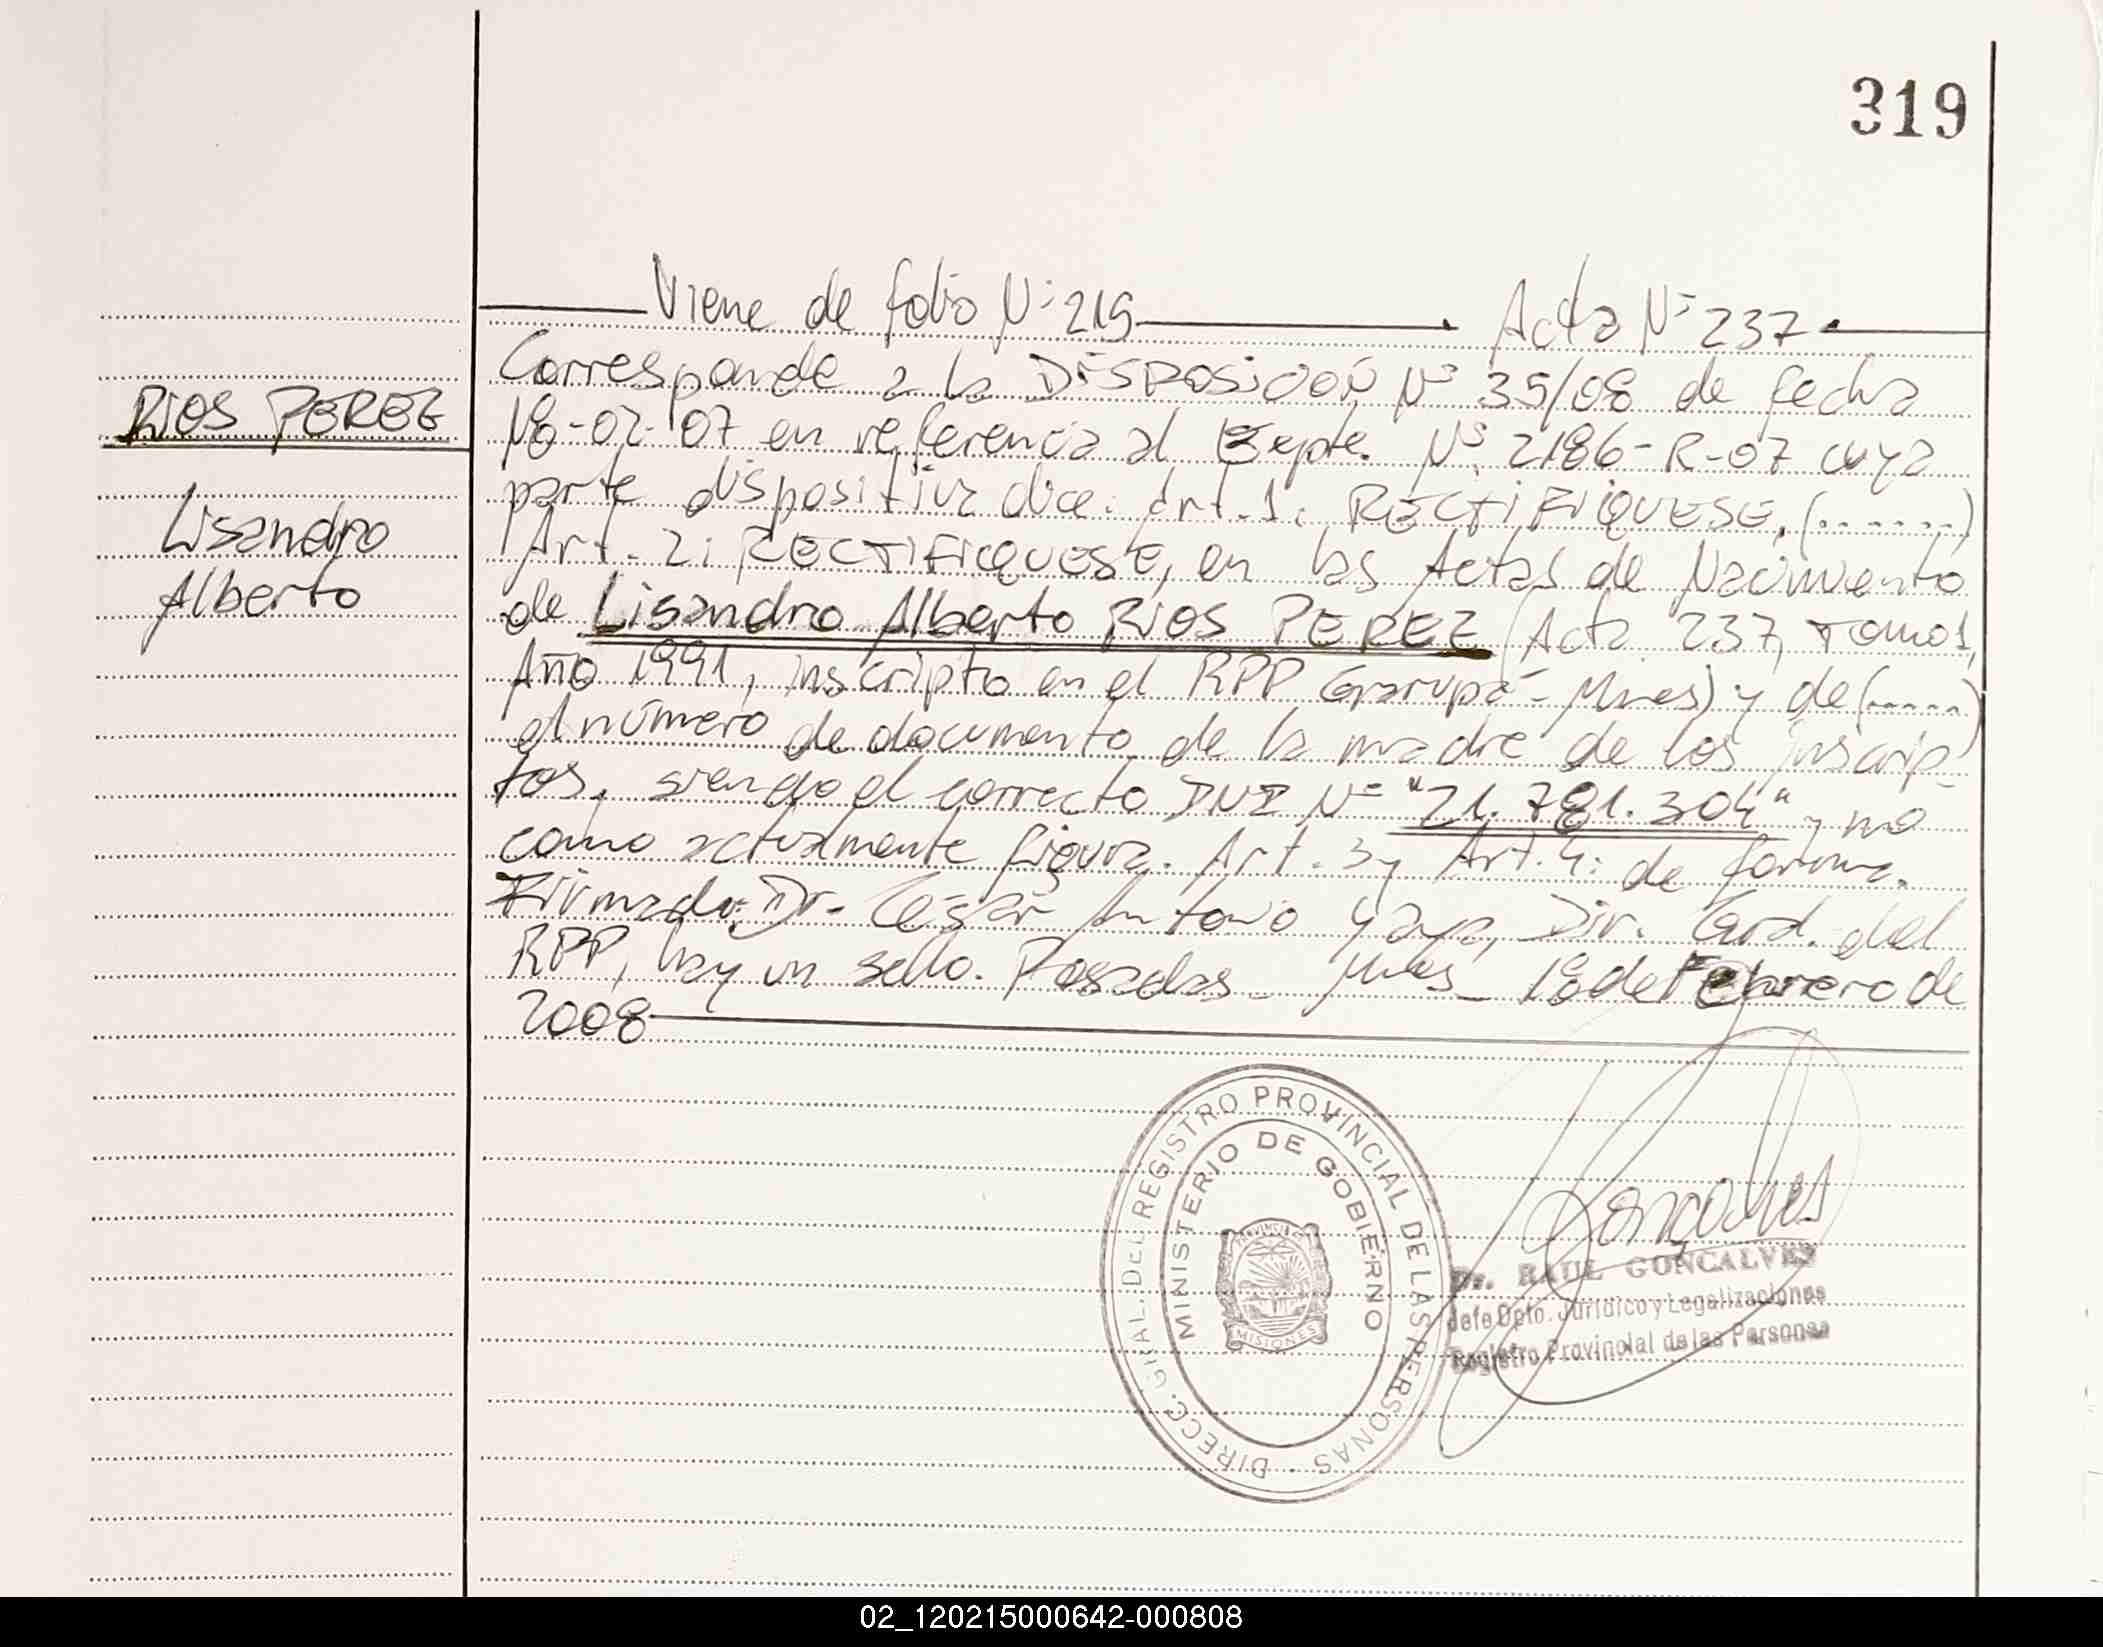 319
Viene de folio Nº 219 Acta Nº 237
Corresponde a la DISPOSICION Nº 35/08 de fecha
RIOS PEREZ
18-02-07 en referencia al Expte. Nº 2186-R-07 cuya
parte dispositiva dice: Art. 1: RECTIFIQUESE, (.......)
Lisandro
Art. 2: RECTIFICQUESE, en las Actas de Nacimiento
Alberto
de Lisandro Alberto RIOS PEREZ (Acta 237, Tomo 1,
Año 1991, inscripto en el RPP Garupá - Mnes) y de (.....)
el número de documento de la madre de los inscrip-
tos, siendo el correcto DNI Nº "21.781.304" y no
como actualmente figura. Art. 3 y Art. 4: de forma.
Firmado: Dr. César Antonio Yaya, Dir. Gral. del
RPP, hay un sello. Posadas - Mnes - 18 de Febrero de
2008
DIRECC. GRAL. DEL REGISTRO PROVINCIAL DE LAS PERSONAS
MINISTERIO DE GOBIERNO
PROVINCIA
MISIONES
Goncalves
Dr. RAUL GONCALVES
Jefe Dpto. Jurídico y Legalizaciones
Registro Provincial de las Personas
02_120215000642-000808